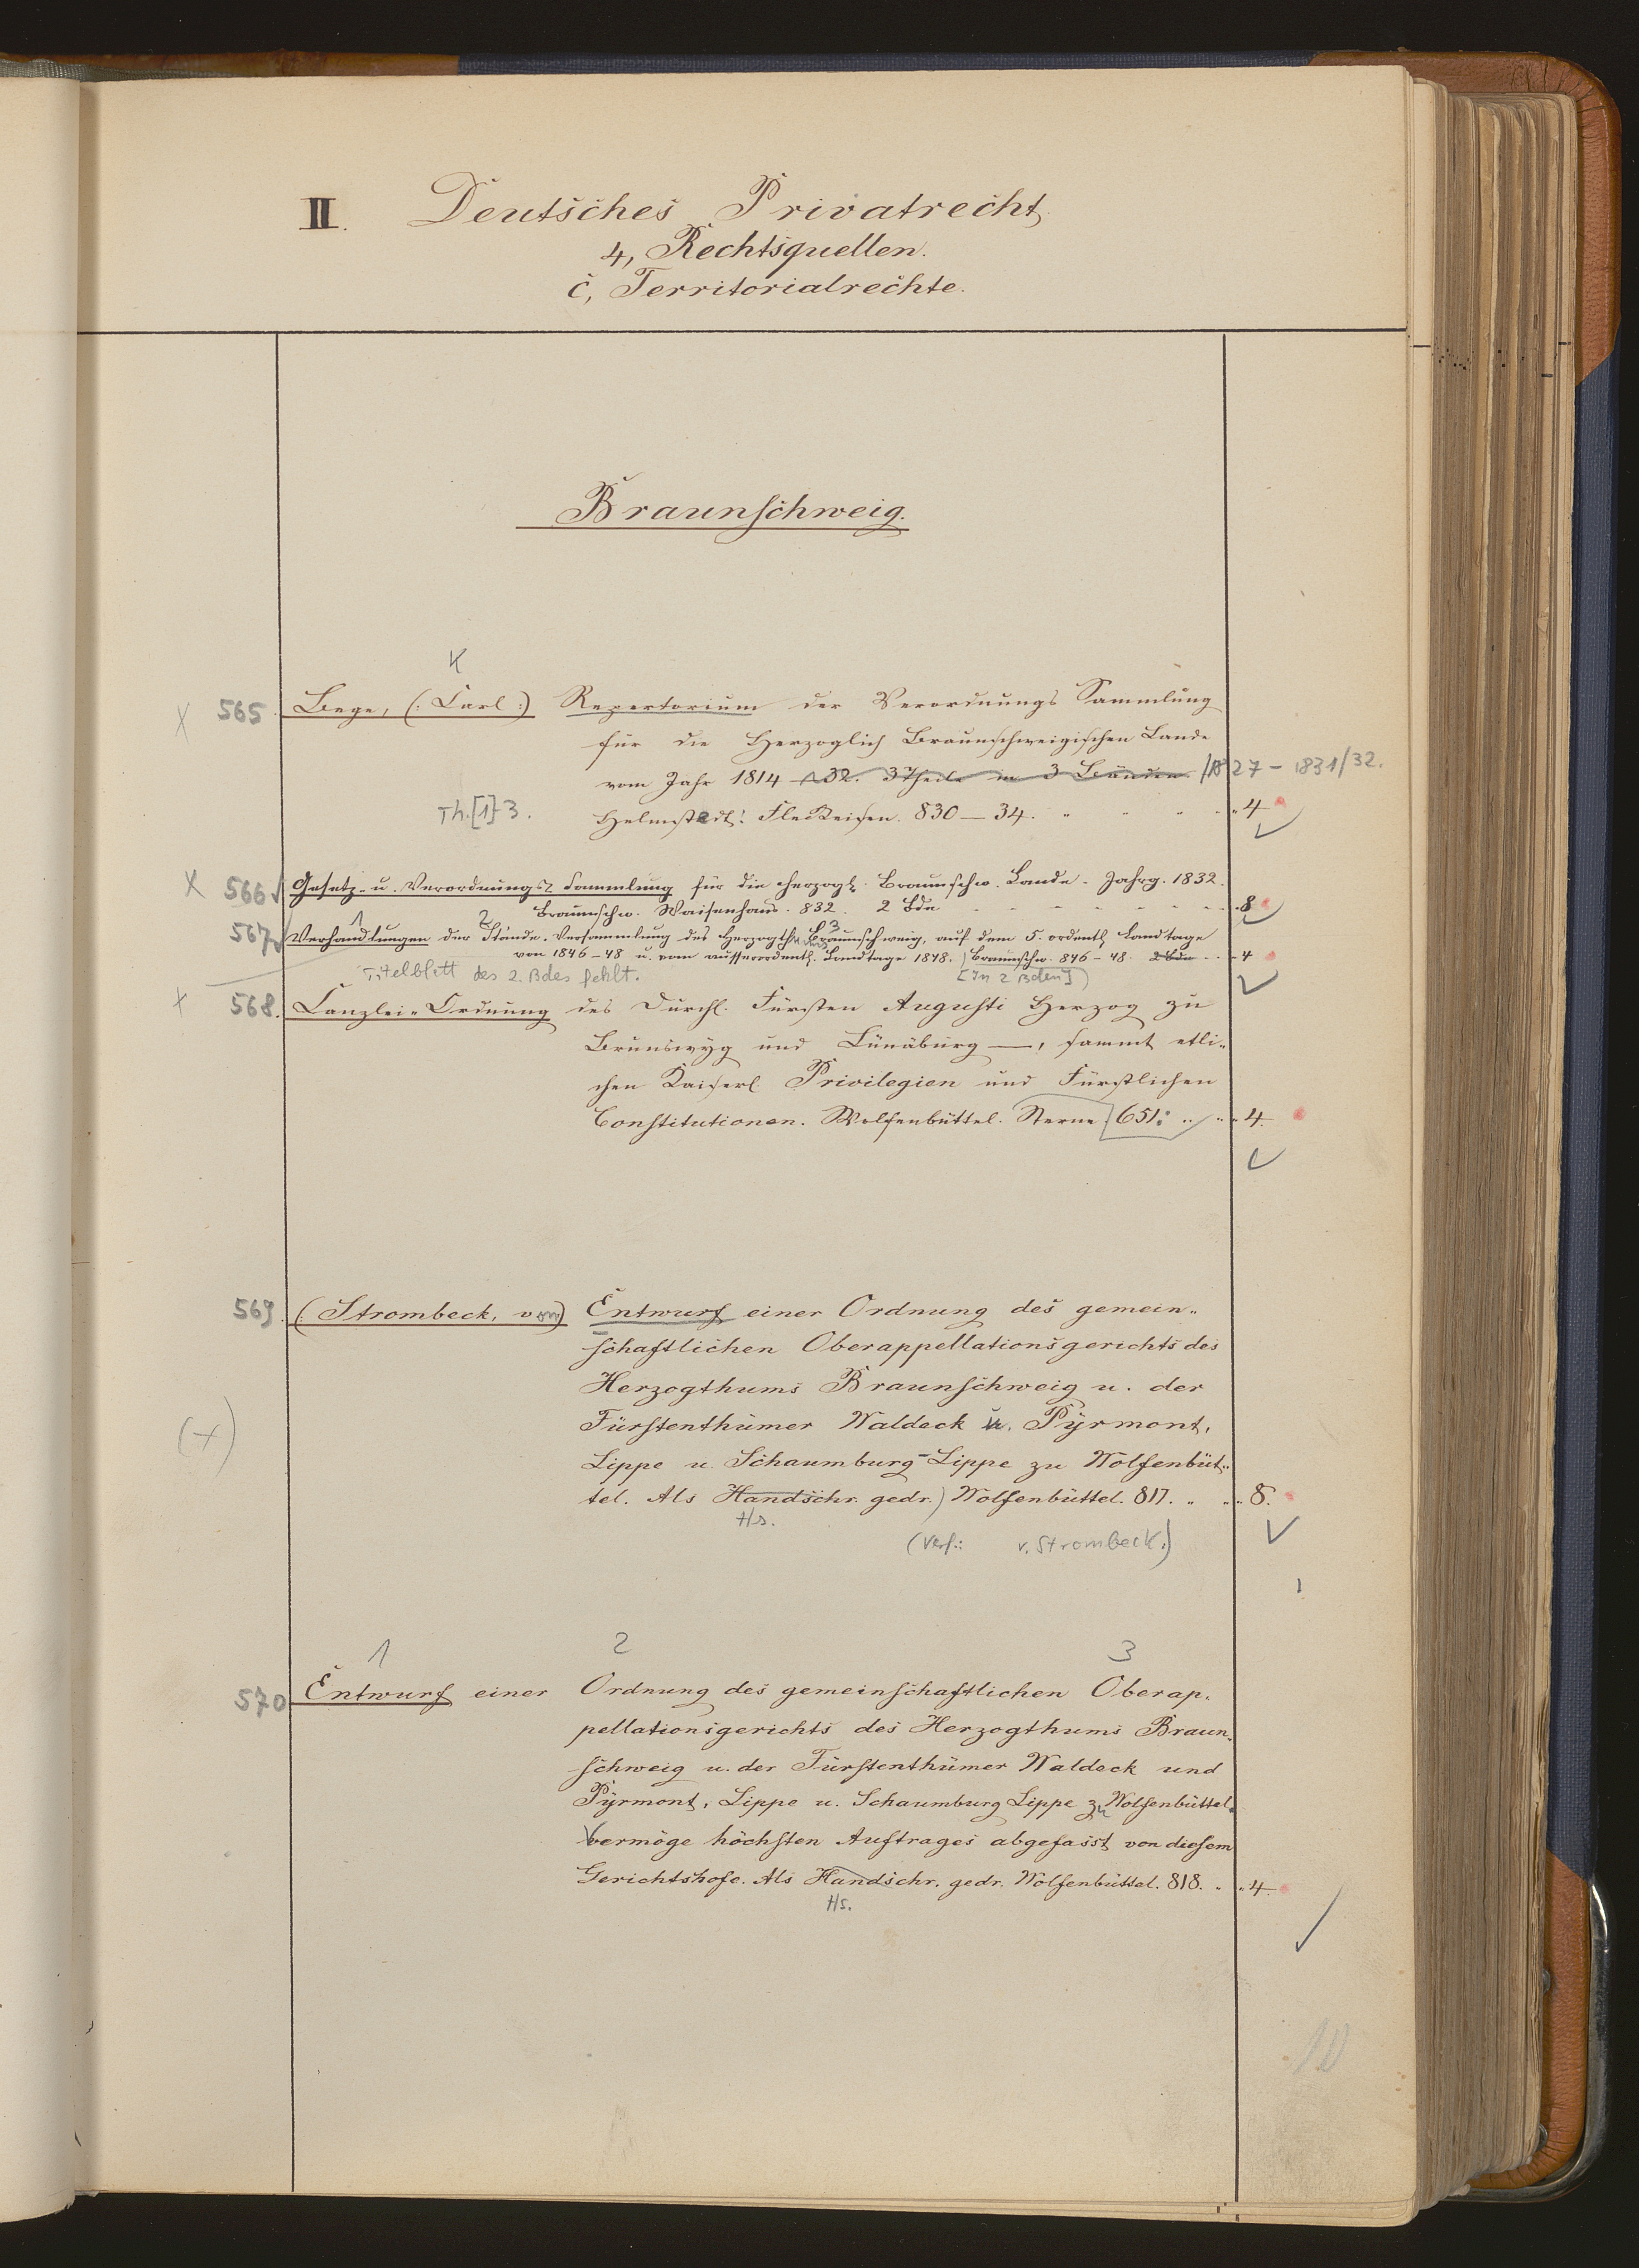 II. Deutsches Privatrecht.
4, Rechtsquellen.
c, Territorialrechte.
Braunschweig.
K
X 565. Bege, (: Carl :) Repertorium der Verordnungs Sammlung
für die Herzoglich Braunschweigischen Lande
vom Jahr 1814 - 32. 3 Theile in 3 Bänden. /1827 - 1831/32.
Th. [1]-3. Helmstedt: Fleckeisen. 830 — 34. 4
X 566 Gesetz- u. Verordnungs-Sammlung für die herzogl. Braunschw. Lande. Jahrg. 1832.
Braunschw. Waisenhaus. 832. 2 Bde 8
1 2 3
567 Verhandlungen der Stände-Versammlung des Herzogth. Braunschweig, auf dem 5. ordentl. Landtage
von 1846-48 u. vom ausserordentl. Landtage 1848.) Braunschw. 846-48. 2 Bde 4
Titelblatt des 2. Bdes fehlt. [In 2 Bden])
x 568. Canzlei-Ordnung des Durchl. Fürsten Augusti Herzog zu
Brunswyg und Lünäburg —, sammt etli-
chen Kaiserl. Privilegien und Fürstlichen
Constitutionen. Wolfenbüttel. Sterne 651. 4.
569. (: Strombeck, von) Entwurf einer Ordnung des gemein-
schaftlichen Oberappellationsgerichts des
Herzogthums Braunschweig u. der
(+) Fürstenthümer Waldeck u. Pyrmont,
Lippe u. Schaumburg-Lippe zu Wolfenbüt-
tel. Als Handschr. gedr.) Wolfenbüttel. 817. 8.
Hs.
(Verf.: v. Strombeck.)
1 2 3
570 Entwurf einer Ordnung des gemeinschaftlichen Oberap-
pellationsgerichts des Herzogthums Braun-
schweig u. der Fürstenthümer Waldeck und
Pyrmont, Lippe u. Schaumburg Lippe zu Wolfenbüttel.
Vermöge höchsten Auftrages abgefasst von diesem
Gerichtshofe. Als Handschr. gedr. Wolfenbüttel. 818. 4.
Hs.
10